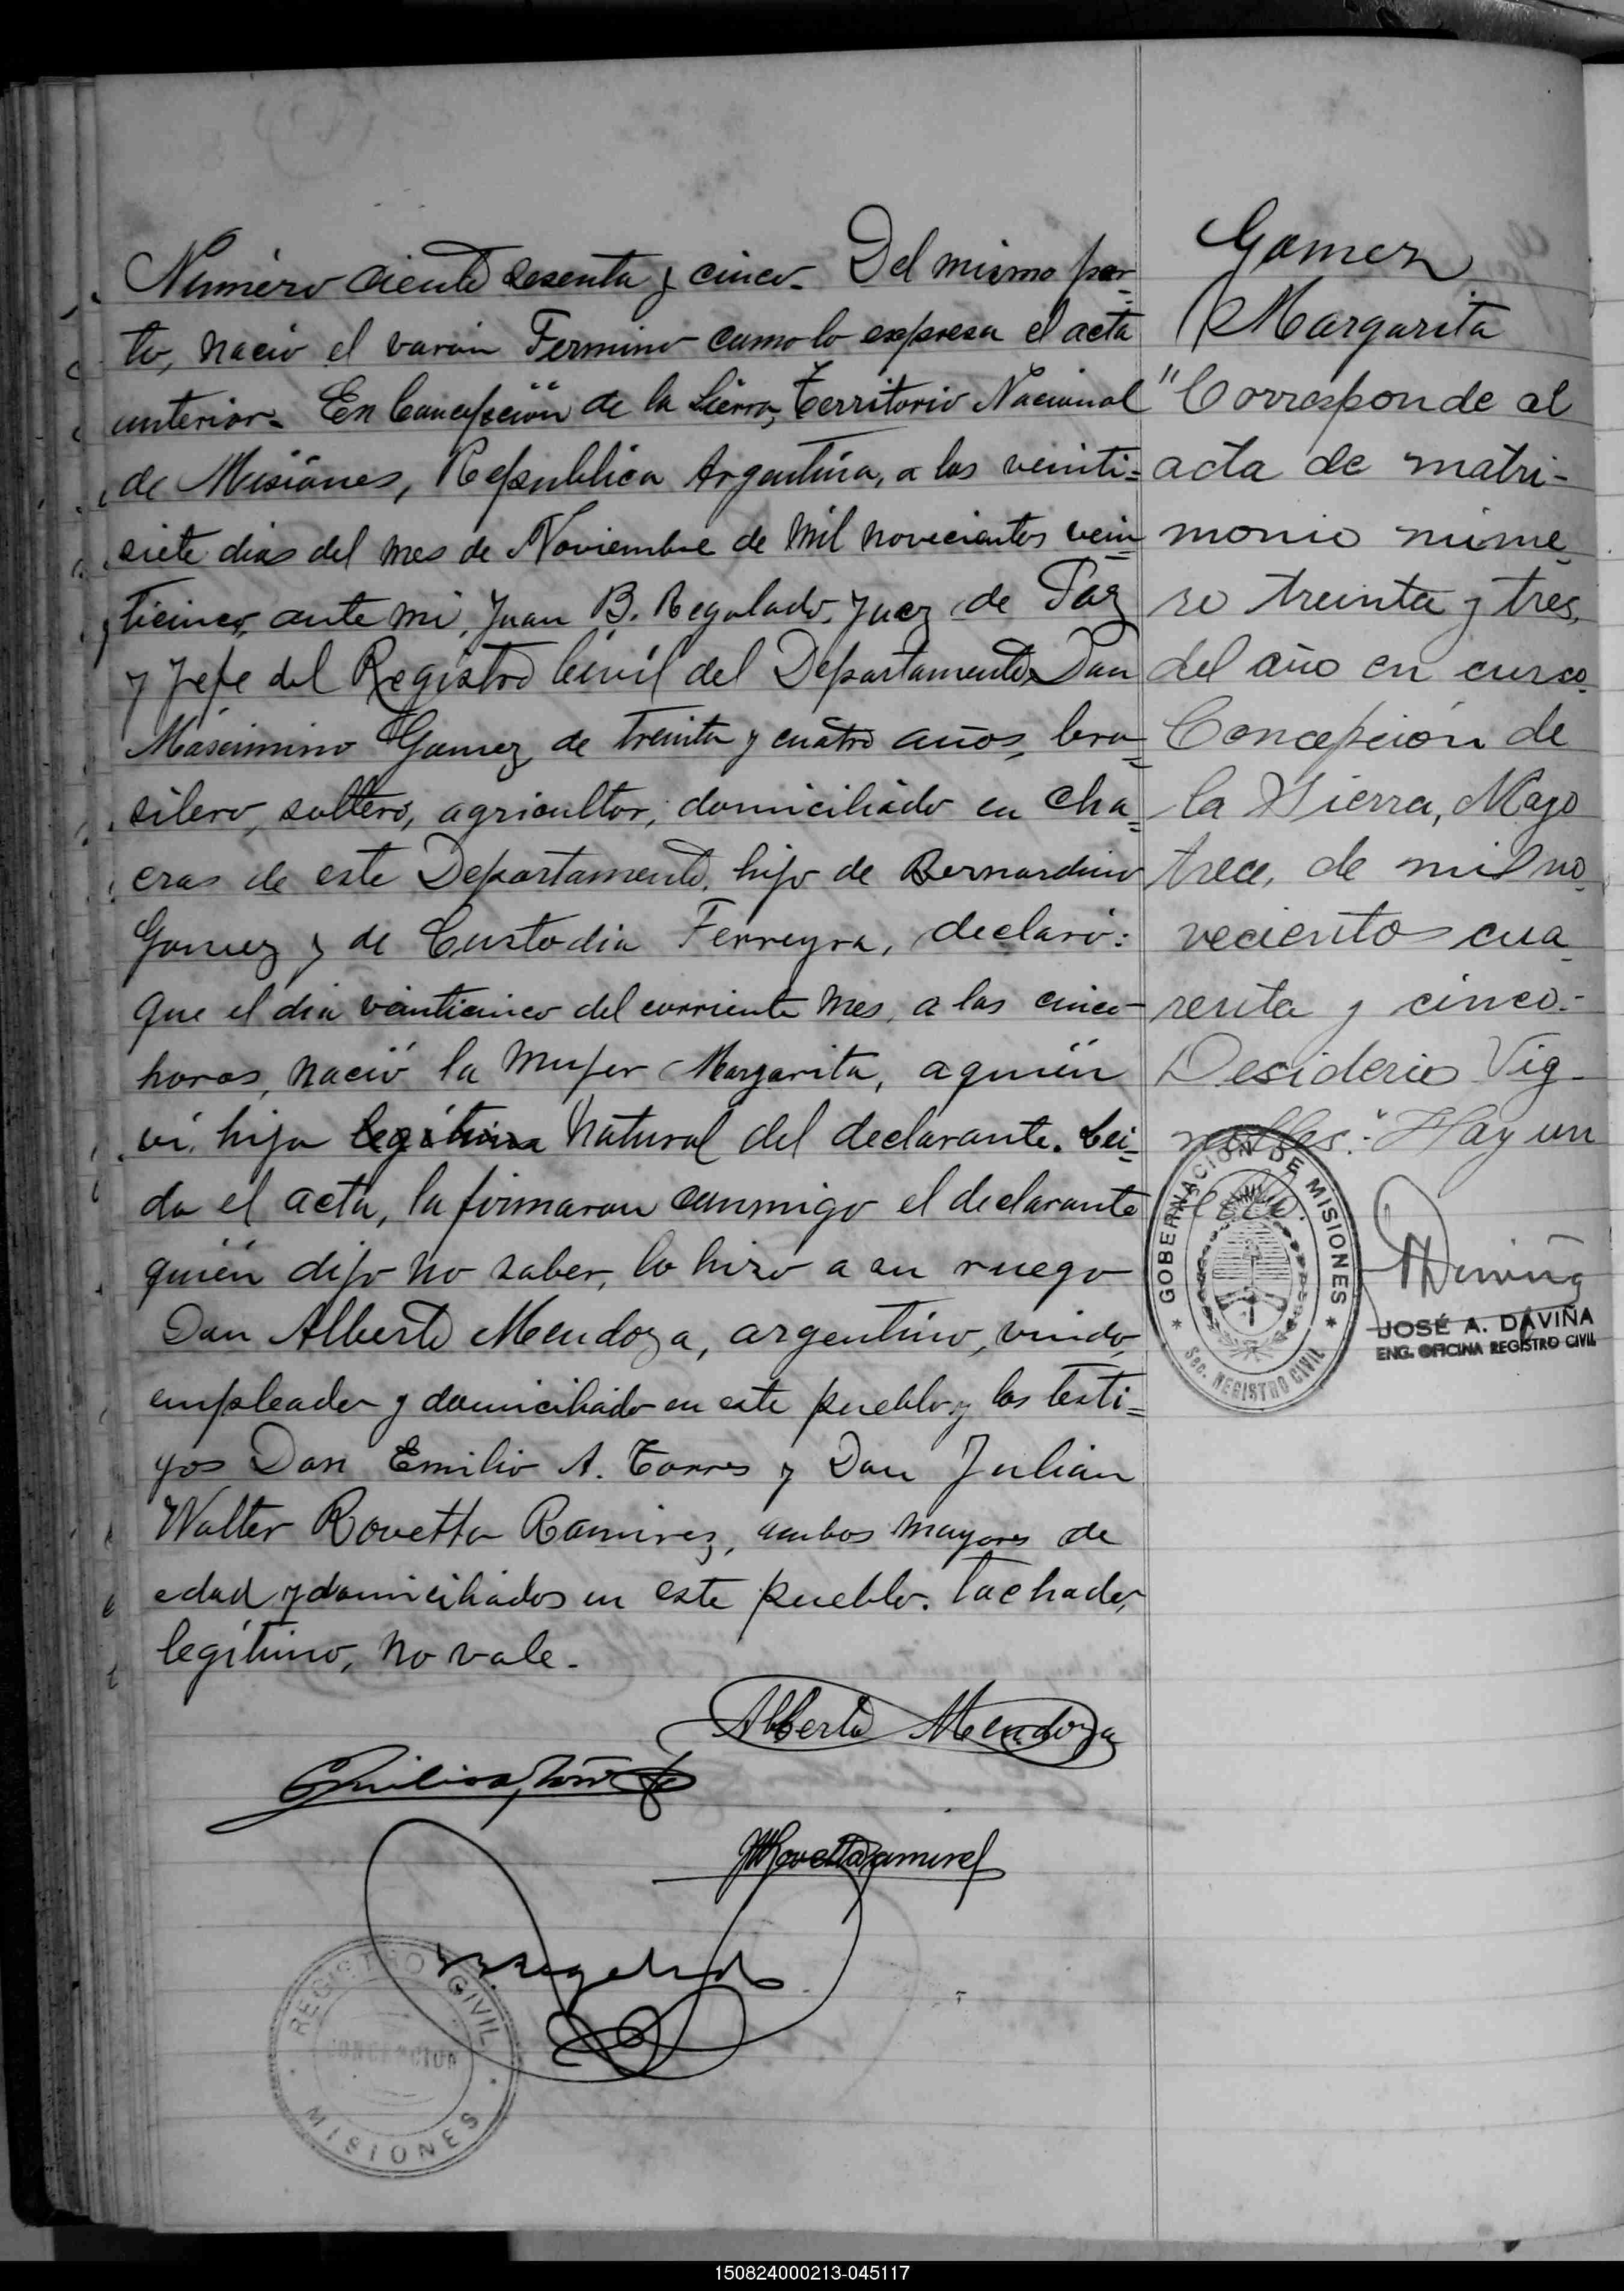 Número ciento sesenta y cinco. Del mismo par-
to, nació el varón Fermino como lo expresa el acta
anterior. En Concepción de la Sierra, Territorio Nacional
de Misiones, República Argentina, a los veinti=
siete dias del mes de Noviembre de mil novecientos vein
ticinco, ante mi, Juan B. Regalado, Juez de Paz
y Jefe del Registro Civil del Departamento, Don
Máscimino Gomez, de treinta y cuatro años, bra-
silero, soltero, agricultor, domiciliado en Cha=
cras de este Departamento, hijo de Bernardino
Gomez y de Custodia Ferreyra, declaró:
Que el dia veinticinco del corriente mes, a las cinco
horas, nació la mujer Margarita, a quién
ví, hija legitima natural del declarante. Leí=
da el acta, la firmaron conmigo el declarante
quién dijo no saber, lo hizo a su ruego
Don Alberto Mendoza, argentino, viudo,
empleado y domiciliado en este pueblo y los testi=
gos Don Emilio A. Torres y Don Julian
Walter Rovetta Ramirez, ambos mayores de
edad y domiciliados en este pueblo. Tachado,
legítimo, no vale.
Alberto Mendoza
REGISTRO CIVIL
CONCEPCION
MISIONES
Gomez
Margarita
"Corresponde al
acta de matri-
monio núme-
ro treinta y tres,
del año en curso.
Concepción de
la Sierra, Mayo
trece, de mil no-
vecientos cua-
renta y cinco.-
Desiderio Vig-
nolles." Hay un
sello.
GOBERNACION DE MISIONES
Sec. REGISTRO CIVIL
JOSÉ A. DAVIÑA
ENC. OFICINA REGISTRO CIVIL
150824000213-045117